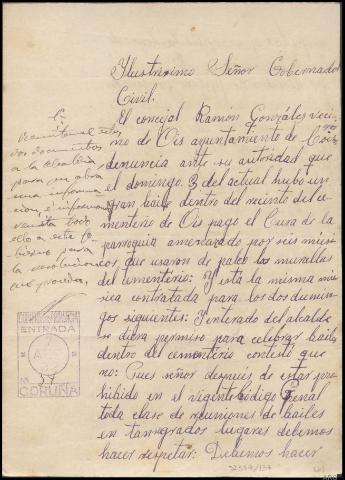 Ilustrisimo Señor Gobernador
Civil.
El concejal Ramón Gonzáles veci
no de Ois ayuntamiento de Coirós
denuncia ante su autoridad que
el domingo 3 del actual hubo un
gran baile dentro del recinto del ce-
menterio de Ois pago el Cura de la
parroquia amenizado por seis musi
cos que usaron de palco las murallas
del cementerio: Y esta la misma mu
sica contratada para los dos dumin
gos siguientes: Y enterado del alcalde
se diera permiso para celebrar bailes
dentro del cementerio contestó que
no: Pues señor después de estar pro
hibido en el vigente Código Penal
toda clase de reuniones de bailes
en tan sagrados lugares debemos
hacer respetar: Debemos hacer
dos documentos
a la Alcaldía
para que abra
una informa
cion, e informada
remita todo
ello a este Go-
bierno para
la resolución
que proceda,
ENTRADA
CORUÑA